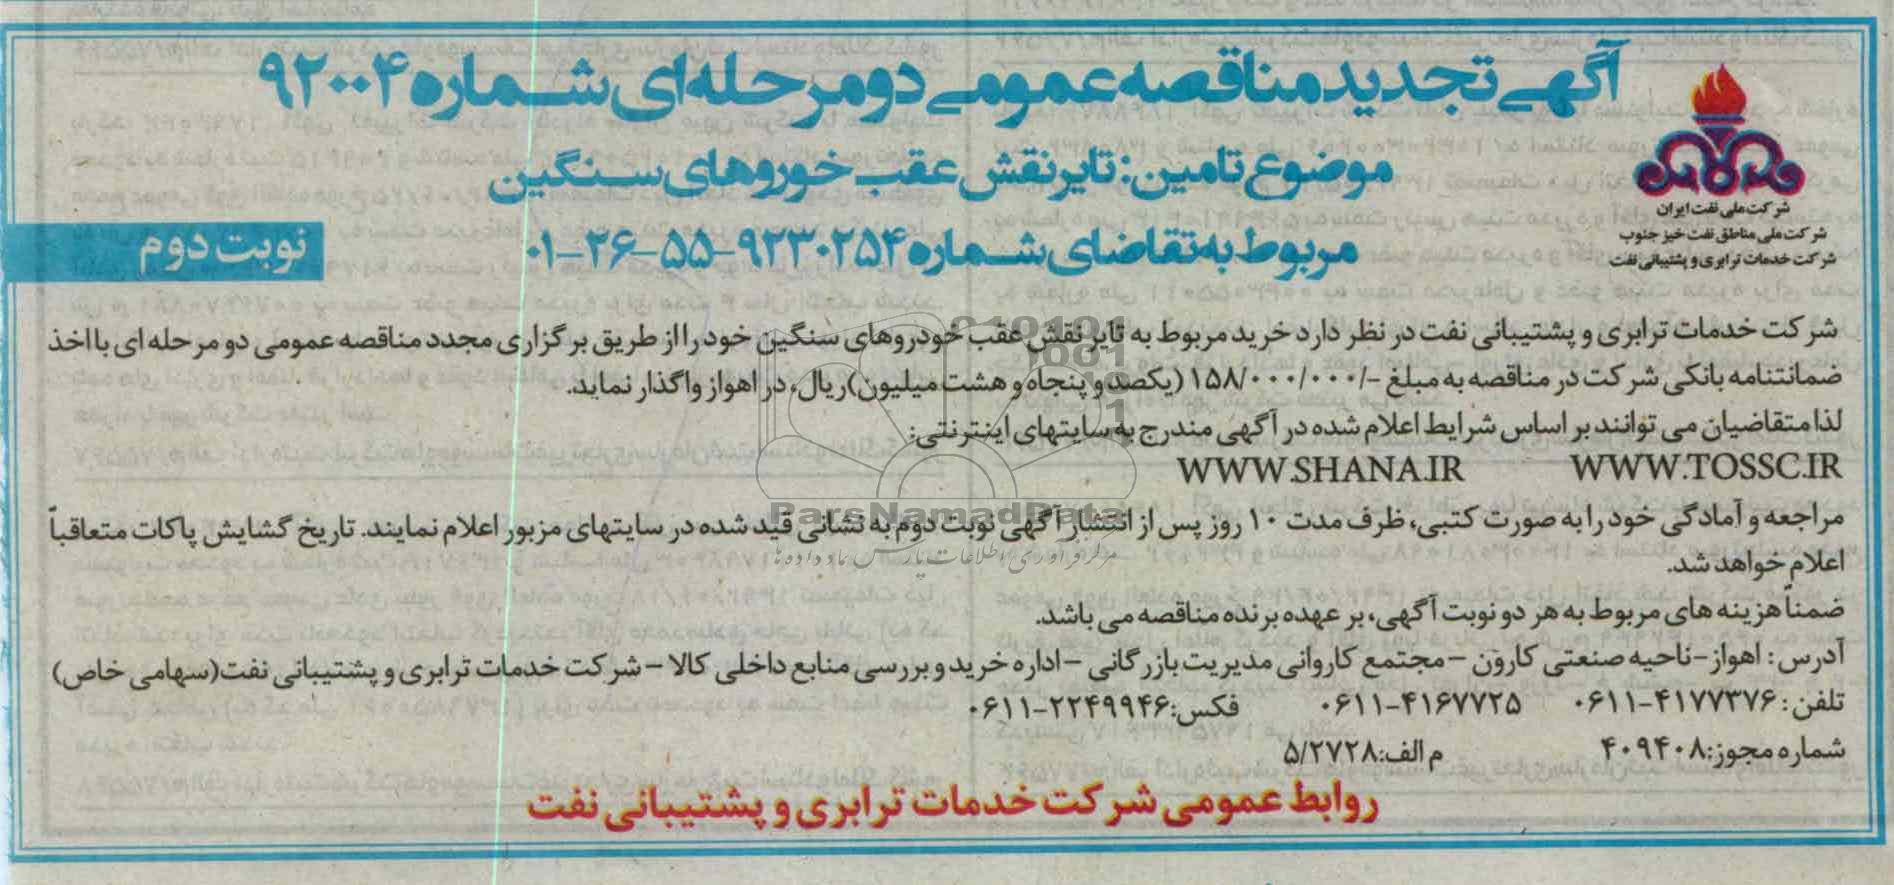 آگهی تجدید مناقصه عمومی دو مرحله ای شماره ۹۲۰۰۴
موضوع تامین: تایر نقش عقب خوروهای سنگین
مربوط به تقاضای شماره ۹۲۳۰۲۵۴-۵۵-۲۶-۰۱
نوبت دوم
شرکت ملی نفت ایران
شرکت ملی مناطق نفت خیز جنوب
شرکت خدمات ترابری و پشتیبانی نفت
شرکت خدمات ترابری و پشتیبانی نفت در نظر دارد خرید مربوط به تایر نقش عقب خودروهای سنگین خود را از طریق برگزاری مجدد مناقصه عمومی دو مرحله ای با اخذ
ضمانتنامه بانکی شرکت در مناقصه به مبلغ -/۱۵۸/۰۰۰/۰۰۰ (یکصد و پنجاه و هشت میلیون) ریال، در اهواز واگذار نماید.
لذا متقاضیان می توانند بر اساس شرایط اعلام شده در آگهی مندرج به سایتهای اینترنتی:
WWW.TOSSC.IR WWW.SHANA.IR
مراجعه و آمادگی خود را به صورت کتبی، ظرف مدت ۱۰ روز پس از انتشار آگهی نوبت دوم به نشانی قید شده در سایتهای مزبور اعلام نمایند. تاریخ گشایش پاکات متعاقباً
اعلام خواهد شد.
ضمناً هزینه های مربوط به هر دو نوبت آگهی، بر عهده برنده مناقصه می باشد.
آدرس: اهواز-ناحیه صنعتی کارون - مجتمع کاروانی مدیریت بازرگانی - اداره خرید و بررسی منابع داخلی کالا - شرکت خدمات ترابری و پشتیبانی نفت (سهامی خاص)
تلفن: ۴۱۷۷۳۷۶-۰۶۱۱ ۴۱۶۷۷۲۵-۰۶۱۱ فکس: ۲۲۴۹۹۴۶-۰۶۱۱
شماره مجوز: ۴۰۹۴۰۸ م الف: ۵/۲۷۲۸
روابط عمومی شرکت خدمات ترابری و پشتیبانی نفت
ParsNamadData
مرکز فرآوری اطلاعات پارس نماد داده ها